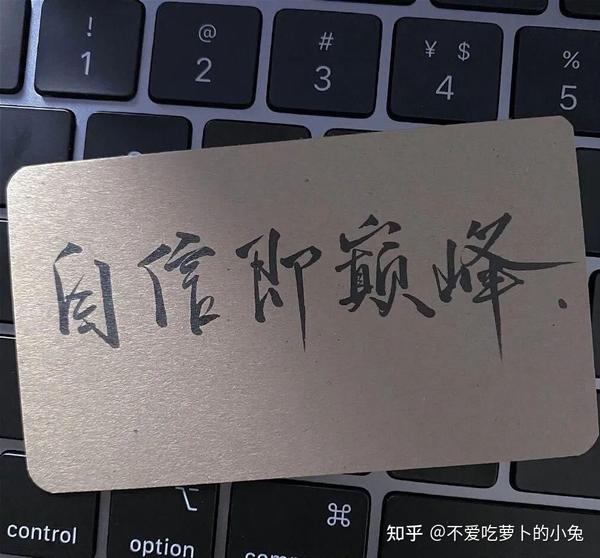 ! @ # ¥ $ %
1 2 3 4 5
自信即巅峰.
control option ⌘
知乎 @不爱吃萝卜的小兔